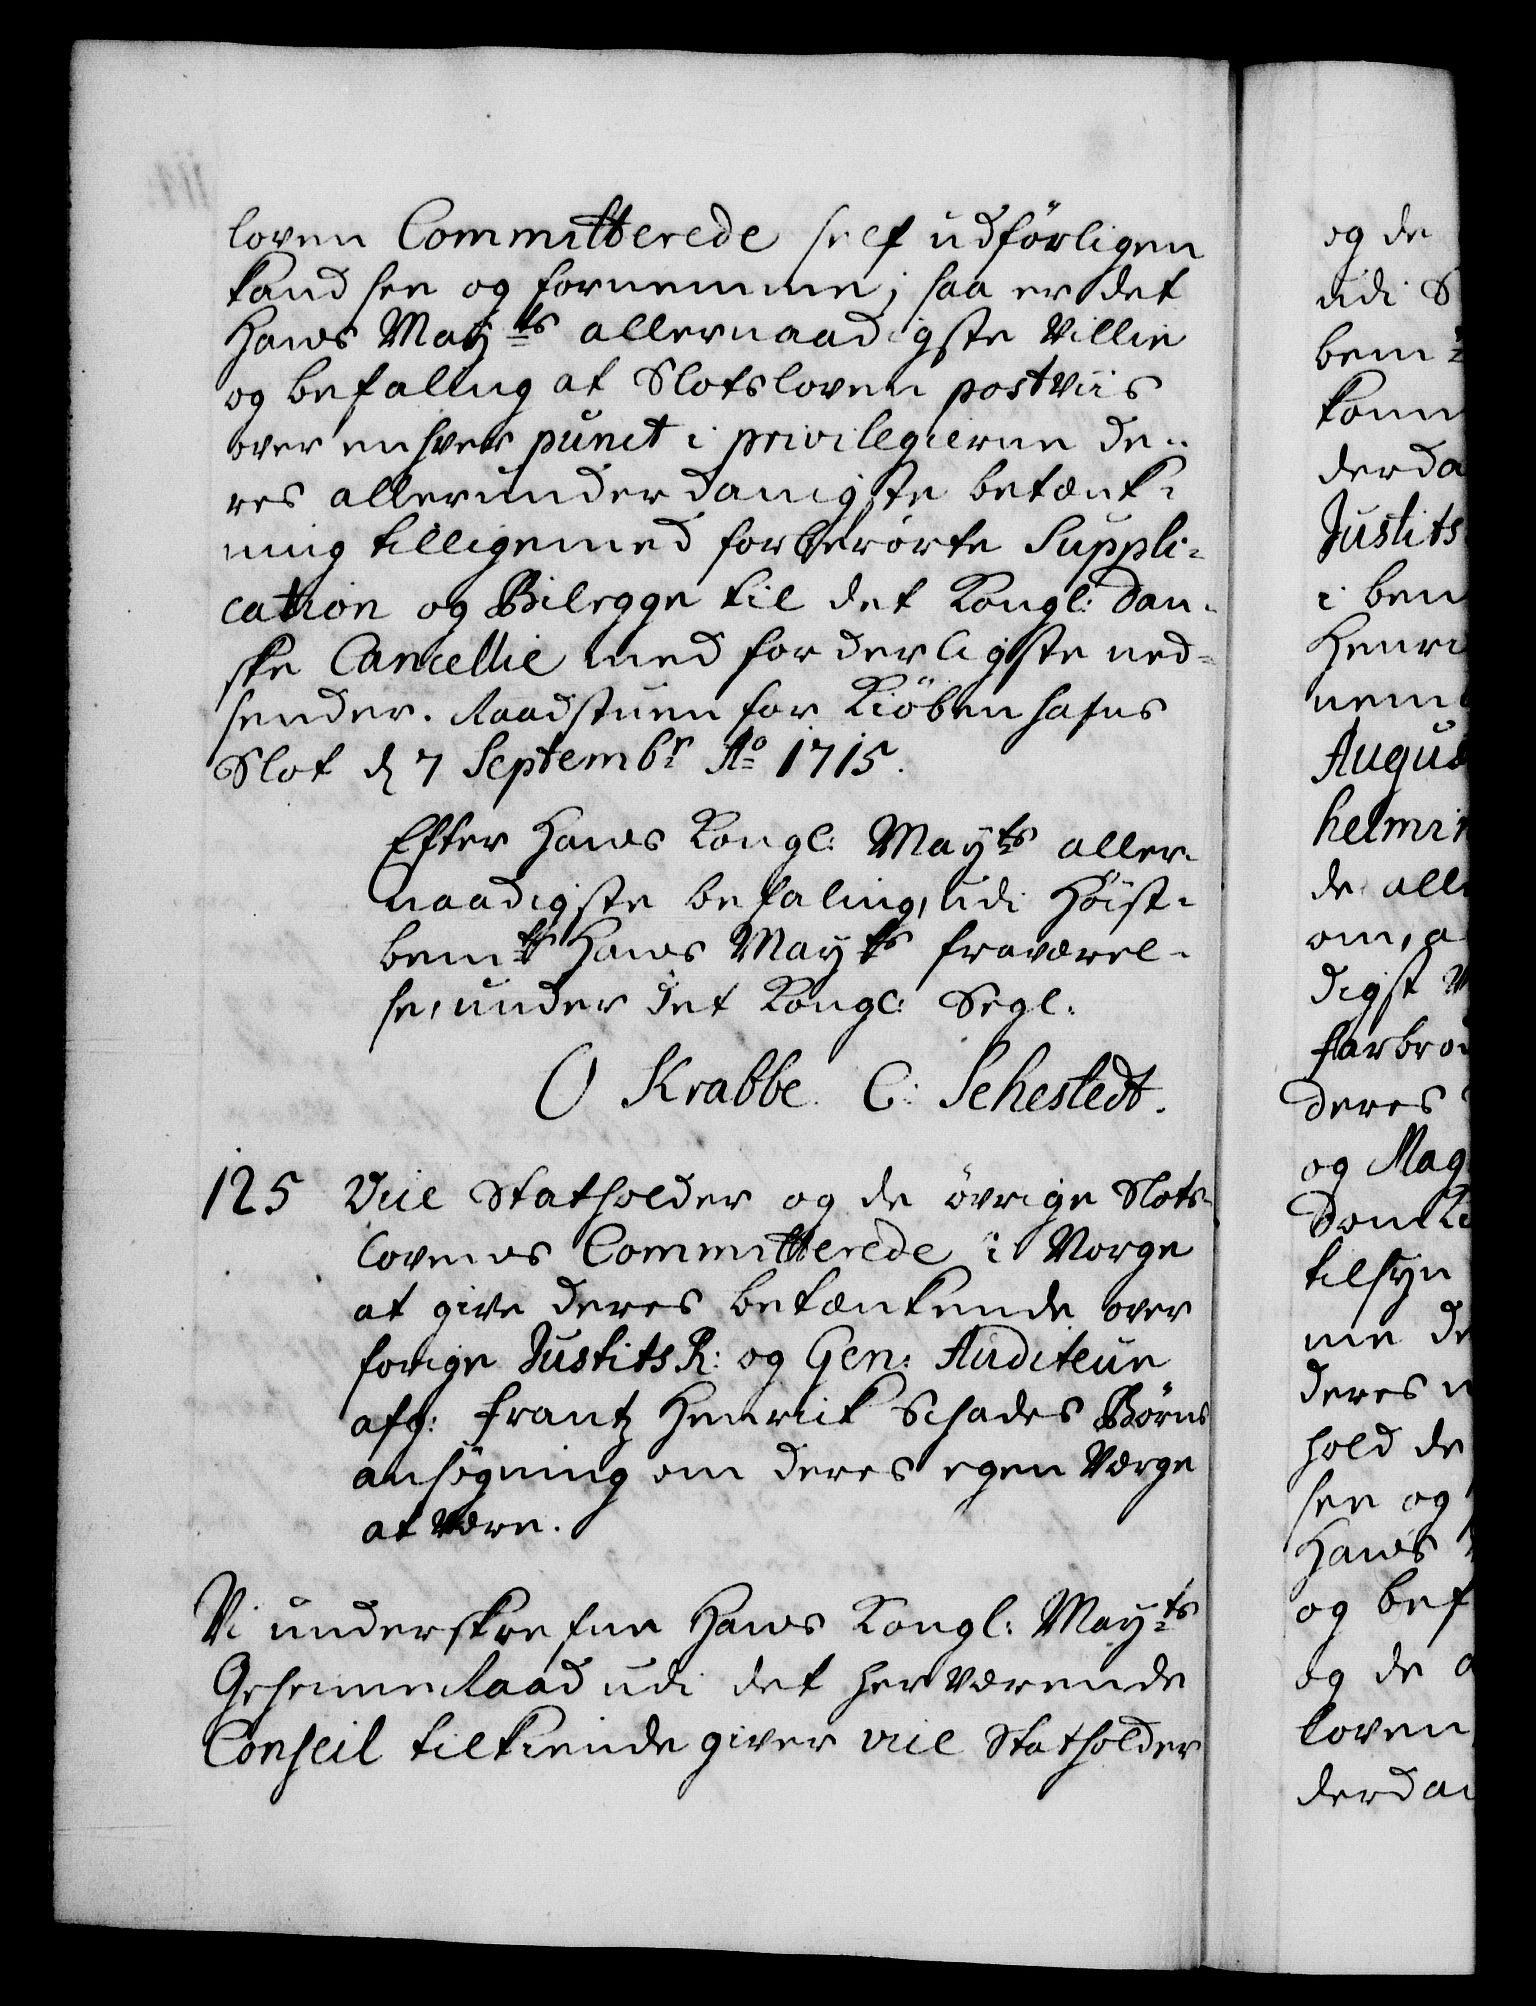 loven Committerede self udförligen
kand see og fornemme; saa er det
Hans May:ts allernaadigste Villie
og befaling at Slotsloven postviis
over enhver punct i privilegierne de-
res allerunderdanigste betænk-
ning tilligemed forberørte Suppli-
cation og Bilegge til det Kongl: dan-
ske Cancellie med forderligste ned-
sender. Raadstuen for Kiöbenhafns
Slot d 7 Septembr: Ao 1715.
Efter Hans Kongl: May:ts aller-
naadigste befaling, udi Höist-
bemte Hans May:ts fraværel-
se, under det Kongl: Segl.
O Krabbe. C: Sehestedt.
125 Vice Statholder og de övrige Slots-
lovens Committerede i Norge
at give deres betænkende over
forige Justits R: og Gen: Auditeur
afg: Frantz Henrick Schades Börns
ansögning om deres egen Værge
at være.
Vi underskrefne Hans Kongl: May:ts
Geheime Raad udi det herværende
Conseil tilkiende giver vice Statholder
og de
udi S
bem
komm
derda
Justits
i ben
Henri
nem
Augus
helmi
de all
om, a
digst
farbro
deres
og Mag
Dom
tilsyn
me de
deres
hold de
see og
Hans
og bef
og de
loven
derdan